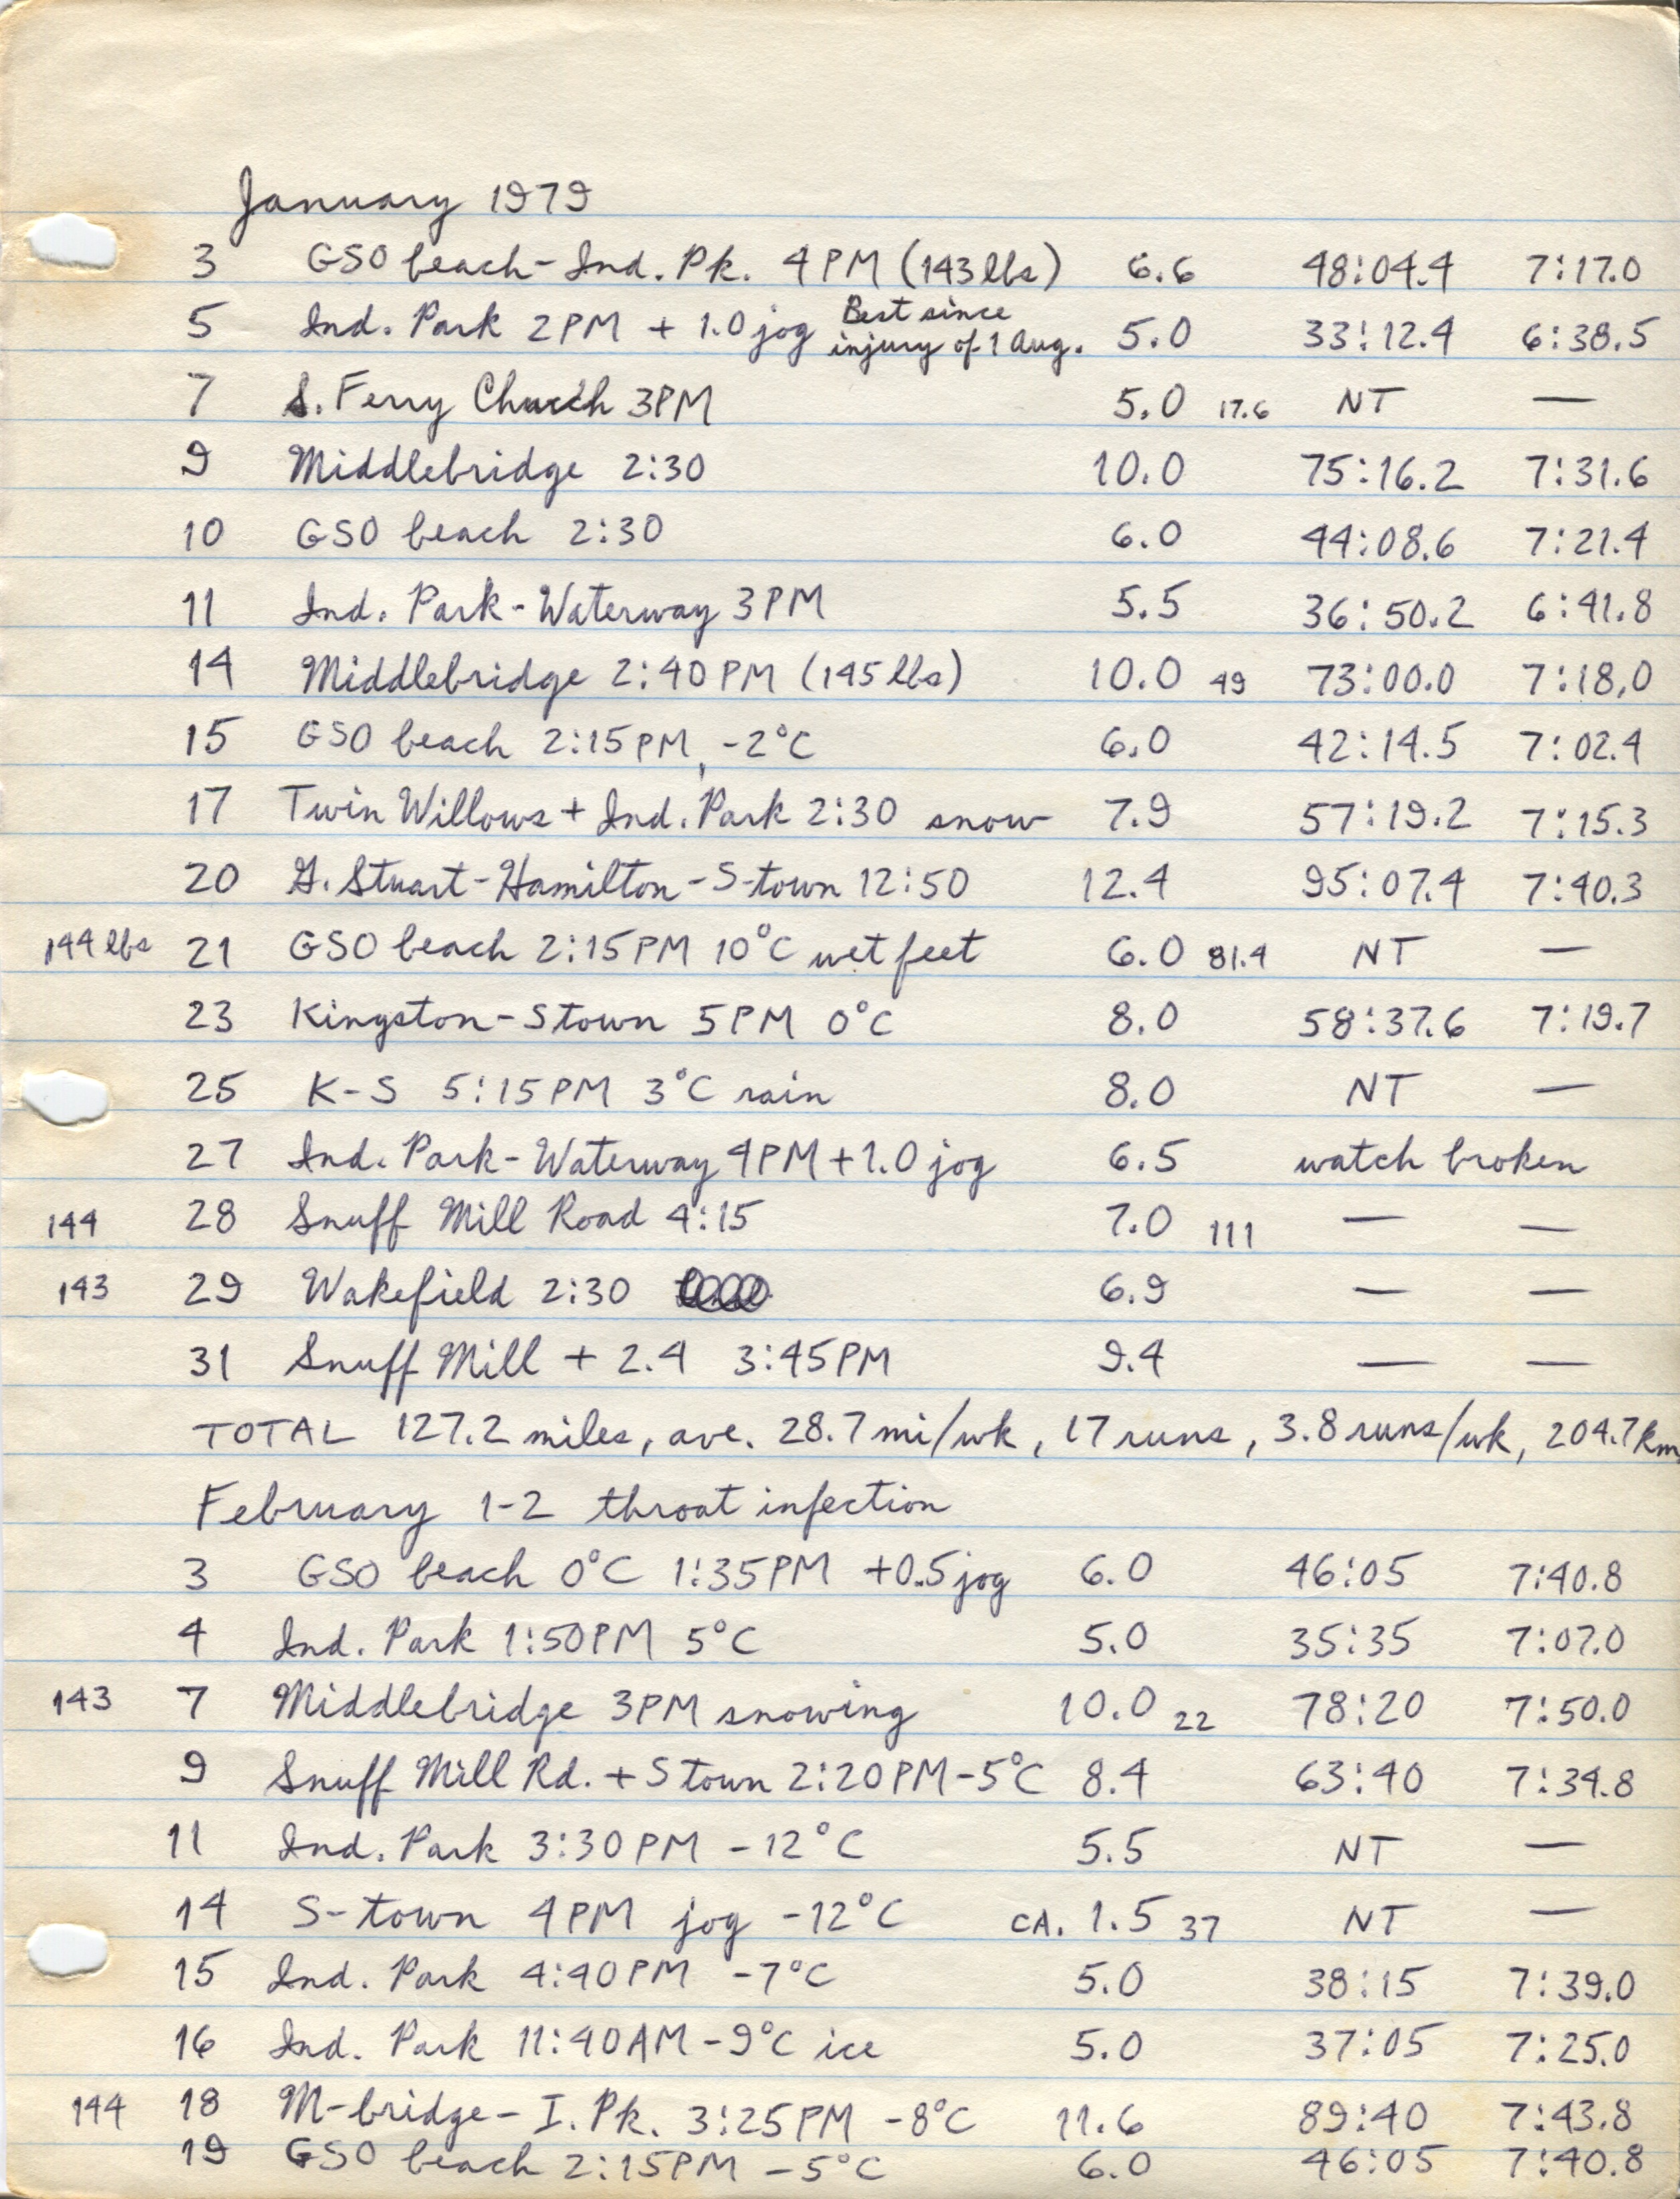 January 1979
3 GSO beach - Ind. Pk. 4PM (143 lbs) 6.6 48:04.4 7:17.0
5 Ind. Park 2PM + 1.0 jog Best since injury of 1 Aug. 5.0 33:12.4 6:38.5
7 S. Ferry Church 3PM 5.0 17.6 NT —
9 Middlebridge 2:30 10.0 75:16.2 7:31.6
10 GSO beach 2:30 6.0 44:08.6 7:21.4
11 Ind. Park - Waterway 3PM 5.5 36:50.2 6:41.8
14 Middlebridge 2:40PM (145 lbs) 10.0 49 73:00.0 7:18.0
15 GSO beach 2:15PM, -2°C 6.0 42:14.5 7:02.4
17 Twin Willows + Ind. Park 2:30 snow 7.9 57:19.2 7:15.3
20 G. Stuart - Hamilton - S-town 12:50 12.4 95:07.4 7:40.3
144 lbs 21 GSO beach 2:15PM 10°C wet feet 6.0 81.4 NT —
23 Kingston - Stown 5PM 0°C 8.0 58:37.6 7:19.7
25 K-S 5:15PM 3°C rain 8.0 NT —
27 Ind. Park - Waterway 4PM + 1.0 jog 6.5 watch broken
144 28 Snuff Mill Road 4:15 7.0 111 — —
143 29 Wakefield 2:30 6.9 — —
31 Snuff Mill + 2.4 3:45PM 9.4 — —
TOTAL 127.2 miles, ave. 28.7 mi/wk, 17 runs, 3.8 runs/wk, 204.7km
February 1-2 throat infection
3 GSO beach 0°C 1:35PM +0.5 jog 6.0 46:05 7:40.8
4 Ind. Park 1:50PM 5°C 5.0 35:35 7:07.0
143 7 Middlebridge 3PM snowing 10.0 22 78:20 7:50.0
9 Snuff Mill Rd. + Stown 2:20PM -5°C 8.4 63:40 7:34.8
11 Ind. Park 3:30PM -12°C 5.5 NT —
14 S-town 4PM jog -12°C CA. 1.5 37 NT —
15 Ind. Park 4:40PM -7°C 5.0 38:15 7:39.0
16 Ind. Park 11:40AM -9°C ice 5.0 37:05 7:25.0
144 18 M-bridge - I. Pk. 3:25PM -8°C 11.6 89:40 7:43.8
19 GSO beach 2:15PM -5°C 6.0 46:05 7:40.8